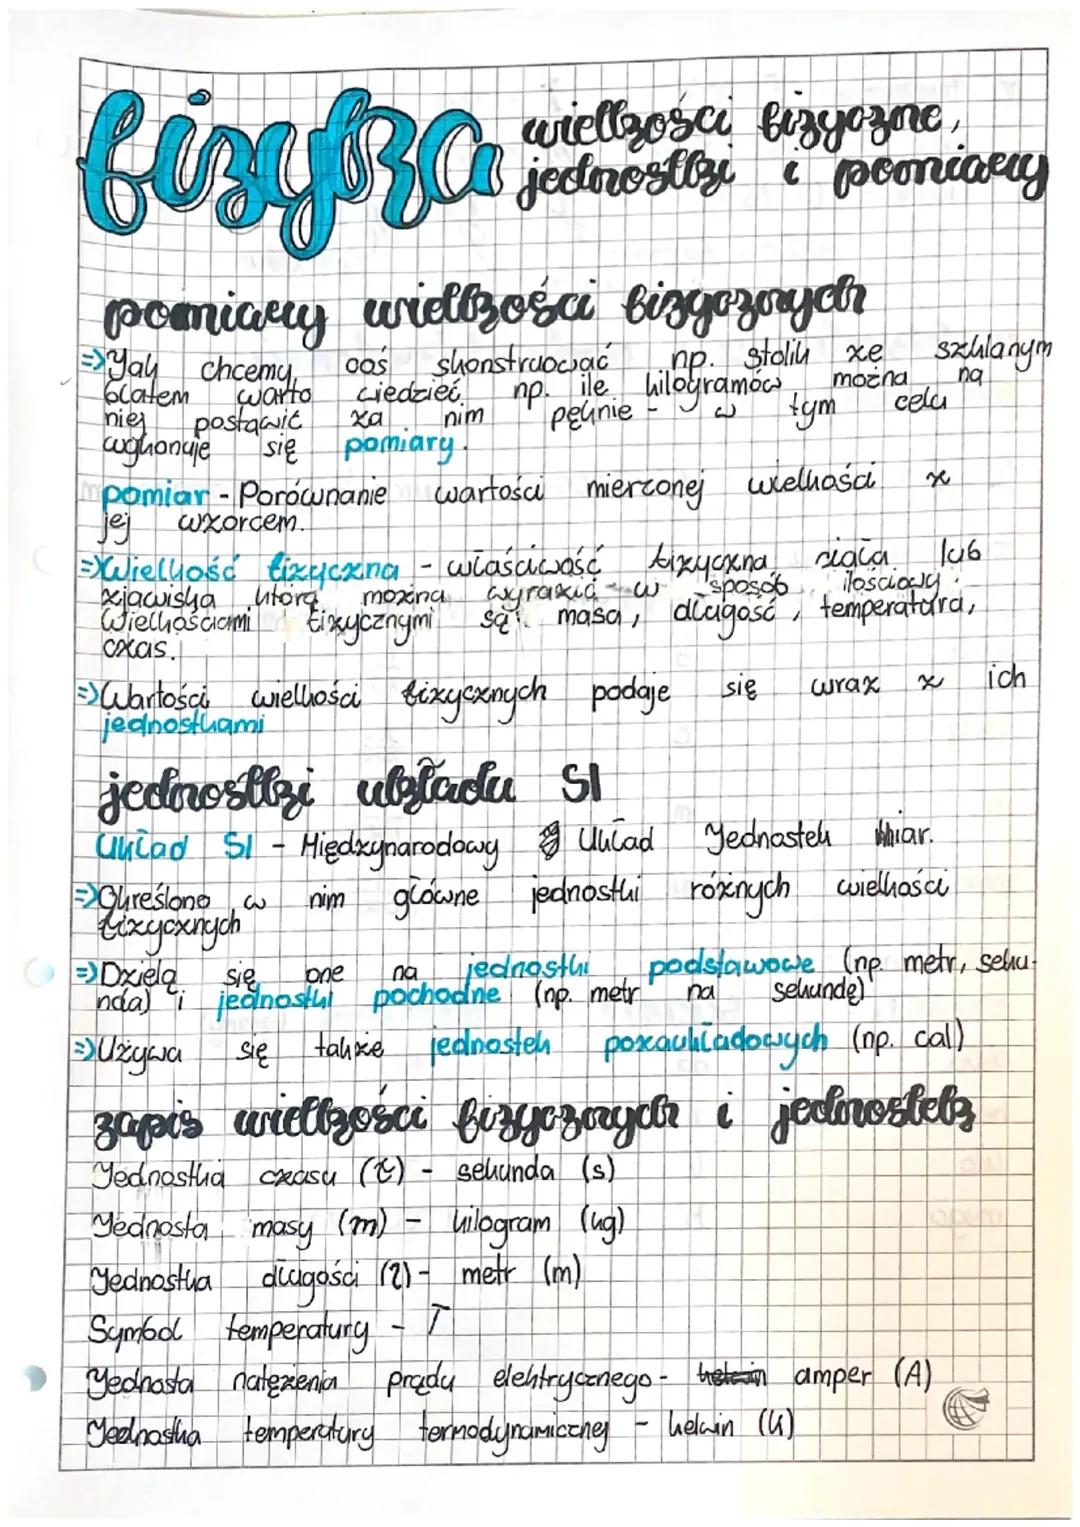 fizyka
wielkości fizyczne,
jednostki i pomiary
pomiary wielkości fizycznych
=> Jak chcemy coś skonstruować np. stolik ze szklanym
blatem warto wiedzieć, np. ile kilogramów można na
niej postawić za nim pęknie - w tym celu
wykonuje się pomiary.
pomiar - Porównanie wartości mierzonej wielkości z
jej wzorcem.
=> Wielkość fizyczna - właściwość fizyczna ciała lub
zjawiska którą można wyrazić w sposób ilościowy.
Wielkościami fizycznymi są: masa, długość, temperatura,
czas.
=> Wartości wielkości fizycznych podaje się wraz z ich
jednostkami
jednostki układu SI
Układ SI - Międzynarodowy Układ Jednostek Miar.
=> Określono w nim główne jednostki różnych wielkości
fizycznych
=> Dzielą się one na jednostki podstawowe (np. metr, seku-
nda) i jednostki pochodne (np. metr na sekundę)
=> Używa się także jednostek pozaukładowych (np. cal)
zapis wielkości fizycznych i jednostek
Jednostka czasu (t) - sekunda (s)
Jednosta masy (m) - kilogram (kg)
Jednostka długości (l) - metr (m)
Symbol temperatury - T
Jednosta natężenia prądu elektrycznego - kelwin amper (A)
Jednostka temperatury termodynamicznej - kelwin (K)